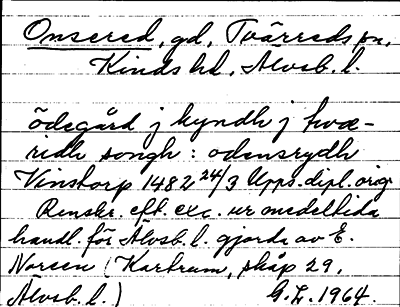 Onsered, gd, Tvärreds sn,
Kinds hd, Älvsb. l.
ödegård j kyndh j twæ-
ridh songh : odensrydh
Vinstorp 1482 24/3 Upps. dipl. orig.
Renskr. eft. exc. ur medeltida
handl. för Älvsb. l. gjorda av E.
Noreen (Kartrum, skåp 29,
Älvsb. l.) G. L. 1964